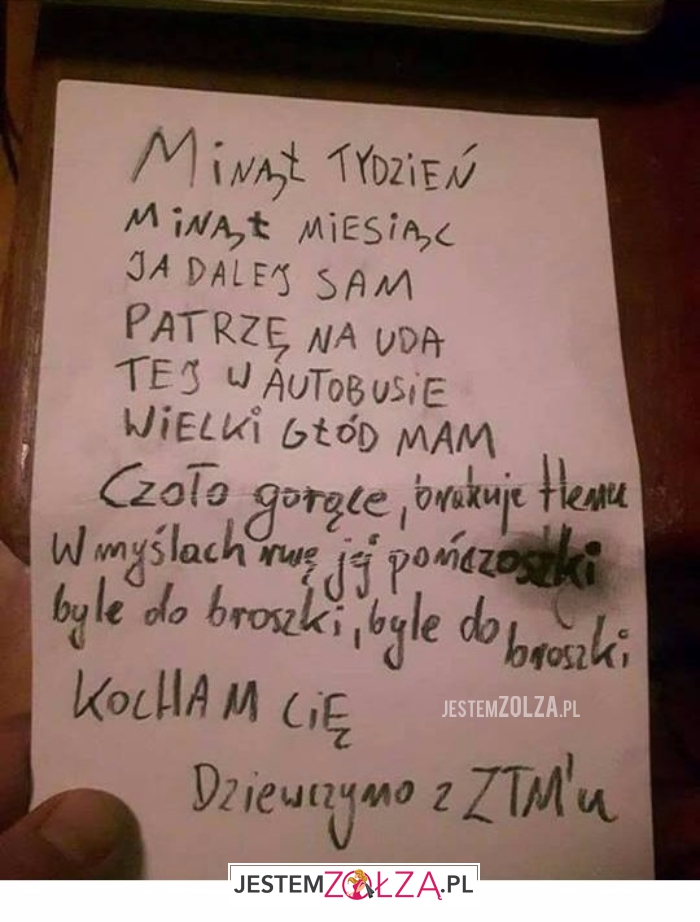 MINĄŁ TYDZIEŃ
MINĄŁ MIESIĄC
JA DALEJ SAM
PATRZĘ NA UDA
TEJ W AUTOBUSIE
WIELKI GŁÓD MAM
Czoło gorące, brakuje tlenu
W myślach rwę jej pończoszki
byle do broszki, byle do broszki
KOCHAM CIĘ
JESTEMZOLZA.PL
Dziewczyno z ZTM'u
JESTEMZOŁZĄ.PL